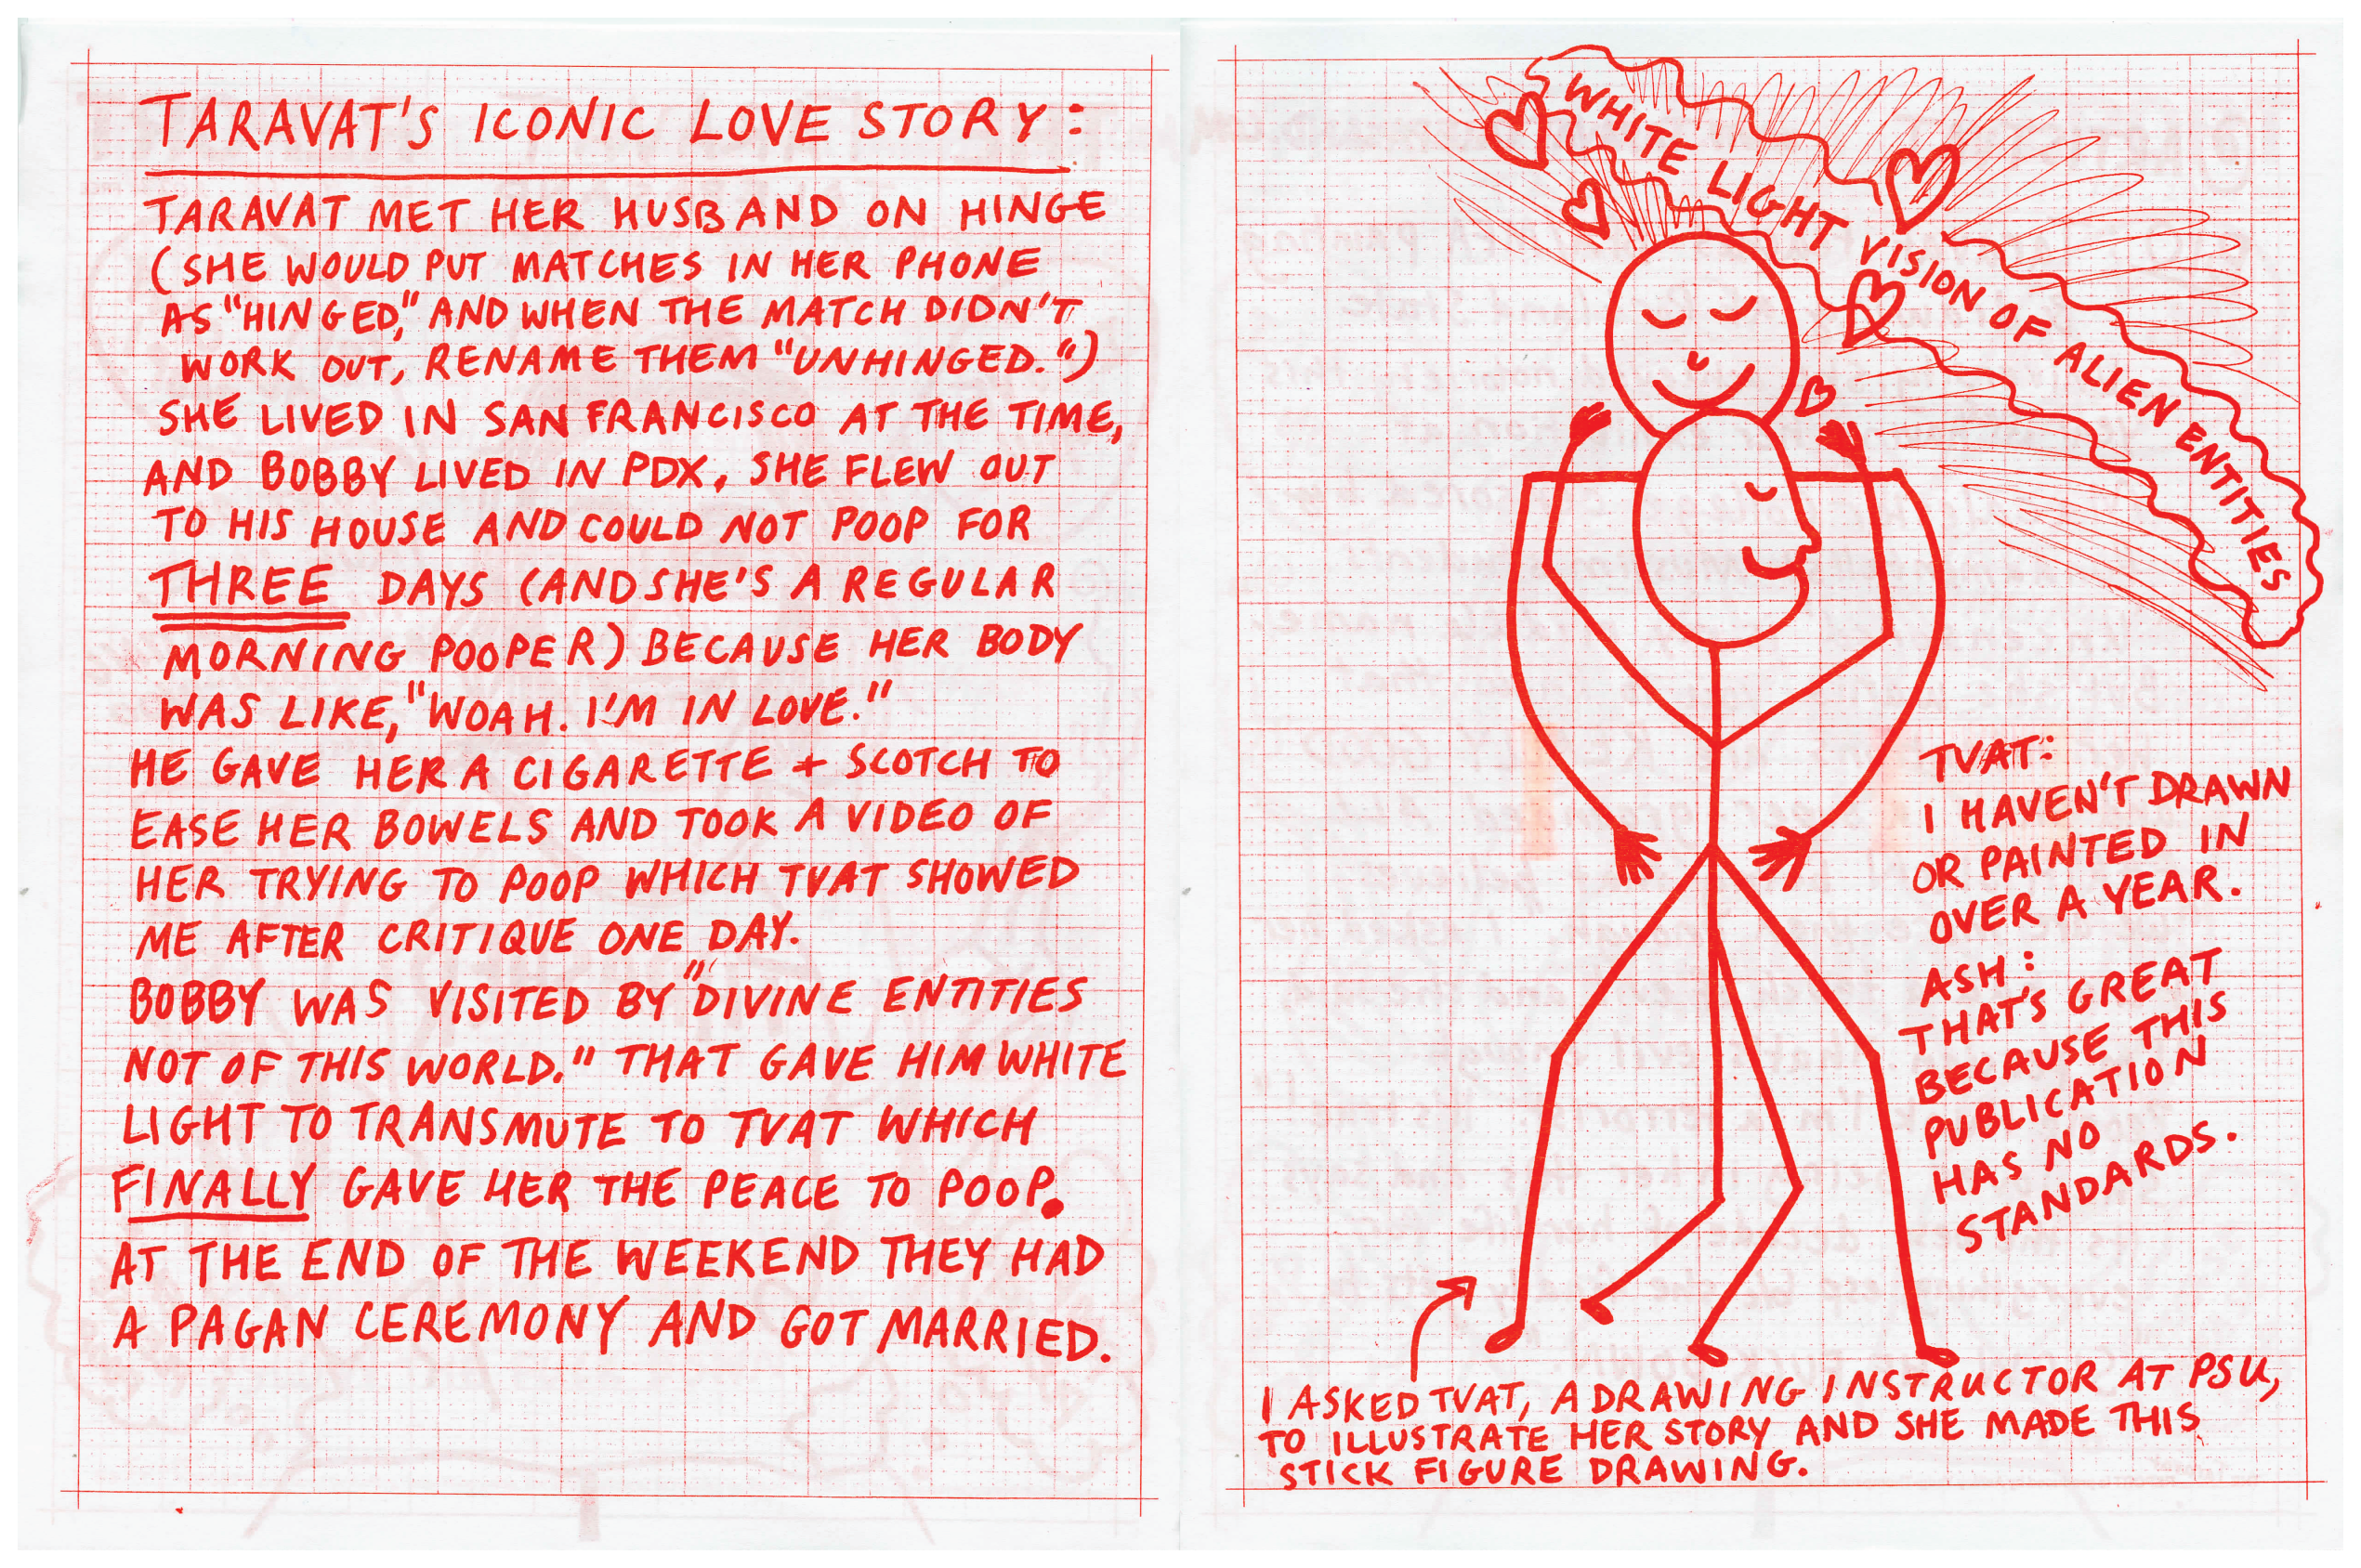 TARAVAT'S ICONIC LOVE STORY:
TARAVAT MET HER HUSBAND ON HINGE
(SHE WOULD PUT MATCHES IN HER PHONE
AS "HINGED," AND WHEN THE MATCH DIDN'T
WORK OUT, RENAME THEM "UNHINGED.")
SHE LIVED IN SAN FRANCISCO AT THE TIME,
AND BOBBY LIVED IN PDX. SHE FLEW OUT
TO HIS HOUSE AND COULD NOT POOP FOR
THREE DAYS (AND SHE'S A REGULAR
MORNING POOPER) BECAUSE HER BODY
WAS LIKE, "WOAH. I'M IN LOVE."
HE GAVE HER A CIGARETTE + SCOTCH TO
EASE HER BOWELS AND TOOK A VIDEO OF
HER TRYING TO POOP WHICH TVAT SHOWED
ME AFTER CRITIQUE ONE DAY.
BOBBY WAS VISITED BY "DIVINE ENTITIES
NOT OF THIS WORLD." THAT GAVE HIM WHITE
LIGHT TO TRANSMUTE TO TVAT WHICH
FINALLY GAVE HER THE PEACE TO POOP.
AT THE END OF THE WEEKEND THEY HAD
A PAGAN CEREMONY AND GOT MARRIED.
WHITE LIGHT VISION OF ALIEN ENTITIES
TVAT:
I HAVEN'T DRAWN
OR PAINTED IN
OVER A YEAR.
ASH:
THAT'S GREAT
BECAUSE THIS
PUBLICATION
HAS NO
STANDARDS.
I ASKED TVAT, A DRAWING INSTRUCTOR AT PSU,
TO ILLUSTRATE HER STORY AND SHE MADE THIS
STICK FIGURE DRAWING.